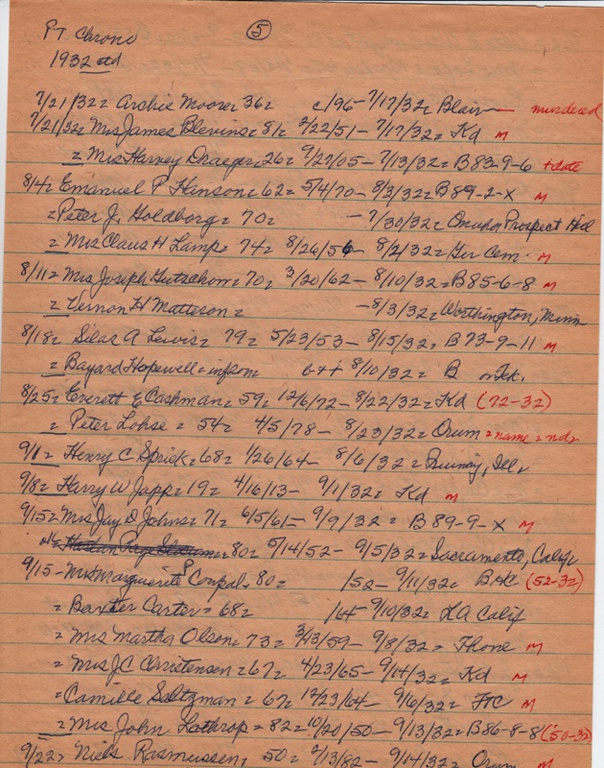 PT Chrono ⑤
1932 ctd
7/21/32= Archie Moore= 36= c/96- 7/17/32= Blair murdered
7/21/32= Mrs James Blevins= 81= 2/22/51- 7/17/32= Kd m
= Mrs Harvey Draeger= 26= 9/27/05- 7/13/32= B 83-9-6 +date
8/4= Emanuel P Hanson= 62= 5/4/70- 8/3/32= B 89-2-X m
= Peter J. Holdborg= 70= -7/30/32= Omaha Prospect Hill
= Mrs Claus H Lamp= 74= 8/26/56- 8/2/32= Ger Cem. m
8/11= Mrs Joseph Gutschow= 70= 3/20/62- 8/10/32= B 85-6-8 m
= Vernon H Matteson= -8/3/32= Worthington, Minn
8/18= Silas A Lewis= 79= 5/23/53- 8/15/32= B 73-9-11 m
= Bayard Hopewell= infson b++ 8/10/32= B
8/25= Everett E Cashman= 59= 12/6/72- 8/22/32= Kd (72-32)
= Peter Lohse= 54= 4/5/78- 8/23/32= Orum =name=nd=
9/1= Henry C Sprick= 68= 1/26/64- 8/6/32= Ill.
9/8= Harry W Japp= 19= 4/16/13- 9/1/32= Kd m
9/15= Mrs Jay D Johns= 71= 6/5/61- 9/9/32= B 89-9-X m
80= 5/14/52- 9/5/32= Sacramento, Calif
9/15- Mrs Marguerite P Coupal= 80= /52- 9/11/32= (52-32)
= Baxter Carter= 68= /64- 9/10/32= LA Calif
= Mrs Martha Olson= 73= 3/13/59- 9/8/32= Fhone m
= Mrs J C Christensen= 67= 4/23/65- 9/14/32= Kd m
= Camille Saltzman= 67= 12/23/64- 9/6/32= FtC m
= Mrs John Lathrop= 82= 10/20/50- 9/13/32= B 86-8-8 (50-32)
9/22= Niels Rasmussen, 50= 2/13/82- 9/14/32= Orum m